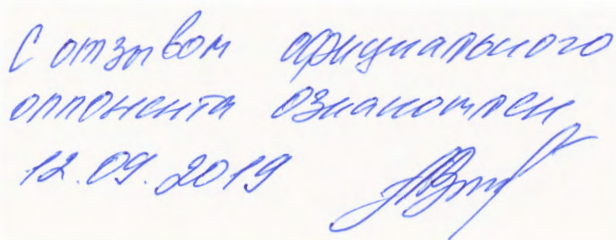 С отзывом официального
оппонента ознакомлен
12.09.2019